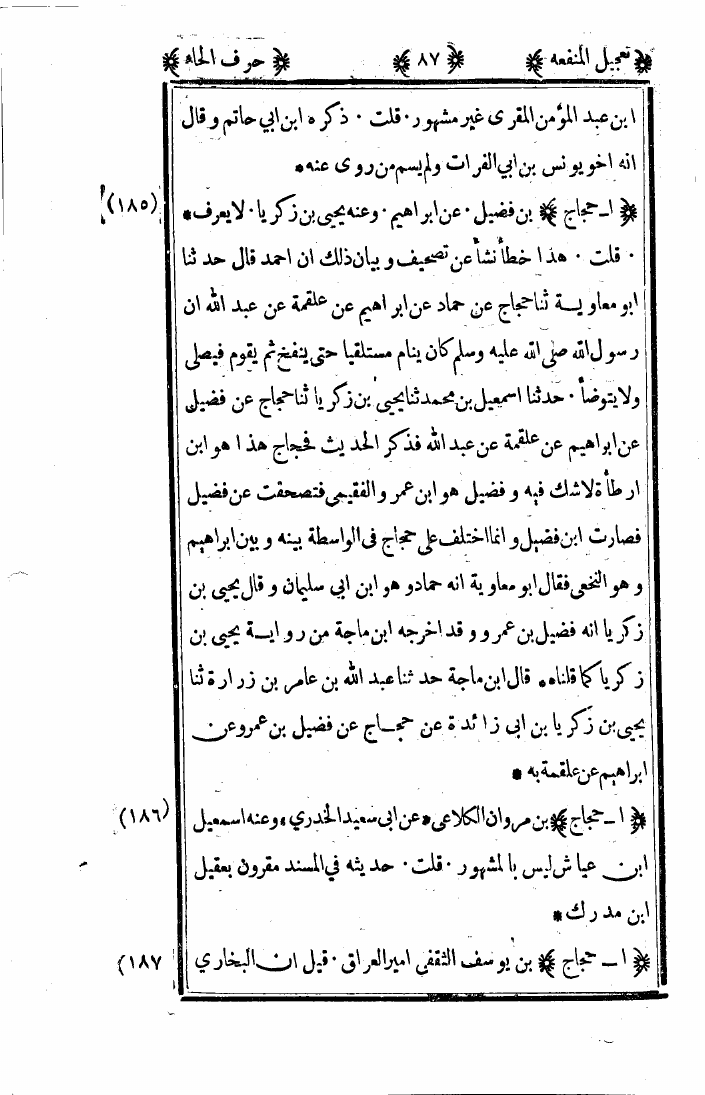 ﴿ تعجيل المنفعه ﴾ ﴿ ٨٧ ﴾ ﴿ حرف الحاء ﴾
ابن عبد المؤمن المقرى غير مشهور · قلت · ذكره ابن ابي حاتم وقال
انه اخو يونس بن ابي الفرات ولم يسم من روى عنه *
﴿ ا ـ حجاج ﴾ بن فضيل · عن ابراهيم · وعنه يحيى بن زكريا · لا يعرف * (١٨٥)
· قلت · هذا خطأ نشأ عن تصحيف و بيان ذلك ان احمد قال حدثنا
ابو معاوية ثنا حجاج عن حماد عن ابراهيم عن علقمة عن عبد الله ان
رسول الله صلى الله عليه وسلم كان ينام مستلقيا حتى ينفخ ثم يقوم فيصلى
ولا يتوضأ · حدثنا اسمعيل بن محمد ثنا يحيى بن زكريا ثنا حجاج عن فضيل
عن ابراهيم عن علقمة عن عبد الله فذكر الحديث فحجاج هذا هو ابن
ارطأة لاشك فيه و فضيل هو ابن عمر و الفقيمى فتصحفت عن فضيل
فصارت ابن فضيل و انما اختلف على حجاج فى الواسطة بينه و بين ابراهيم
و هو النخعى فقال ابو معاوية انه حماد و هو ابن ابي سليمان و قال يحيى بن
زكريا انه فضيل بن عمرو و قد اخرجه ابن ماجة من رواية يحيى بن
زكريا كما قلناه * قال ابن ماجة حدثنا عبد الله بن عامر بن زرارة ثنا
يحيى بن زكريا بن ابى زائدة عن حجاج عن فضيل بن عمرو عن
ابراهيم عن علقمة به *
﴿ ا ـ حجاج ﴾ بن مروان الكلاعى * عن ابى سعيد الخدري * وعنه اسمعيل (١٨٦)
ابن عياش ليس بالمشهور · قلت · حديثه في المسند مقرون بعقيل
ابن مدرك *
﴿ ا ـ حجاج ﴾ بن يوسف الثقفى امير العراق · قيل ان البخاري (١٨٧